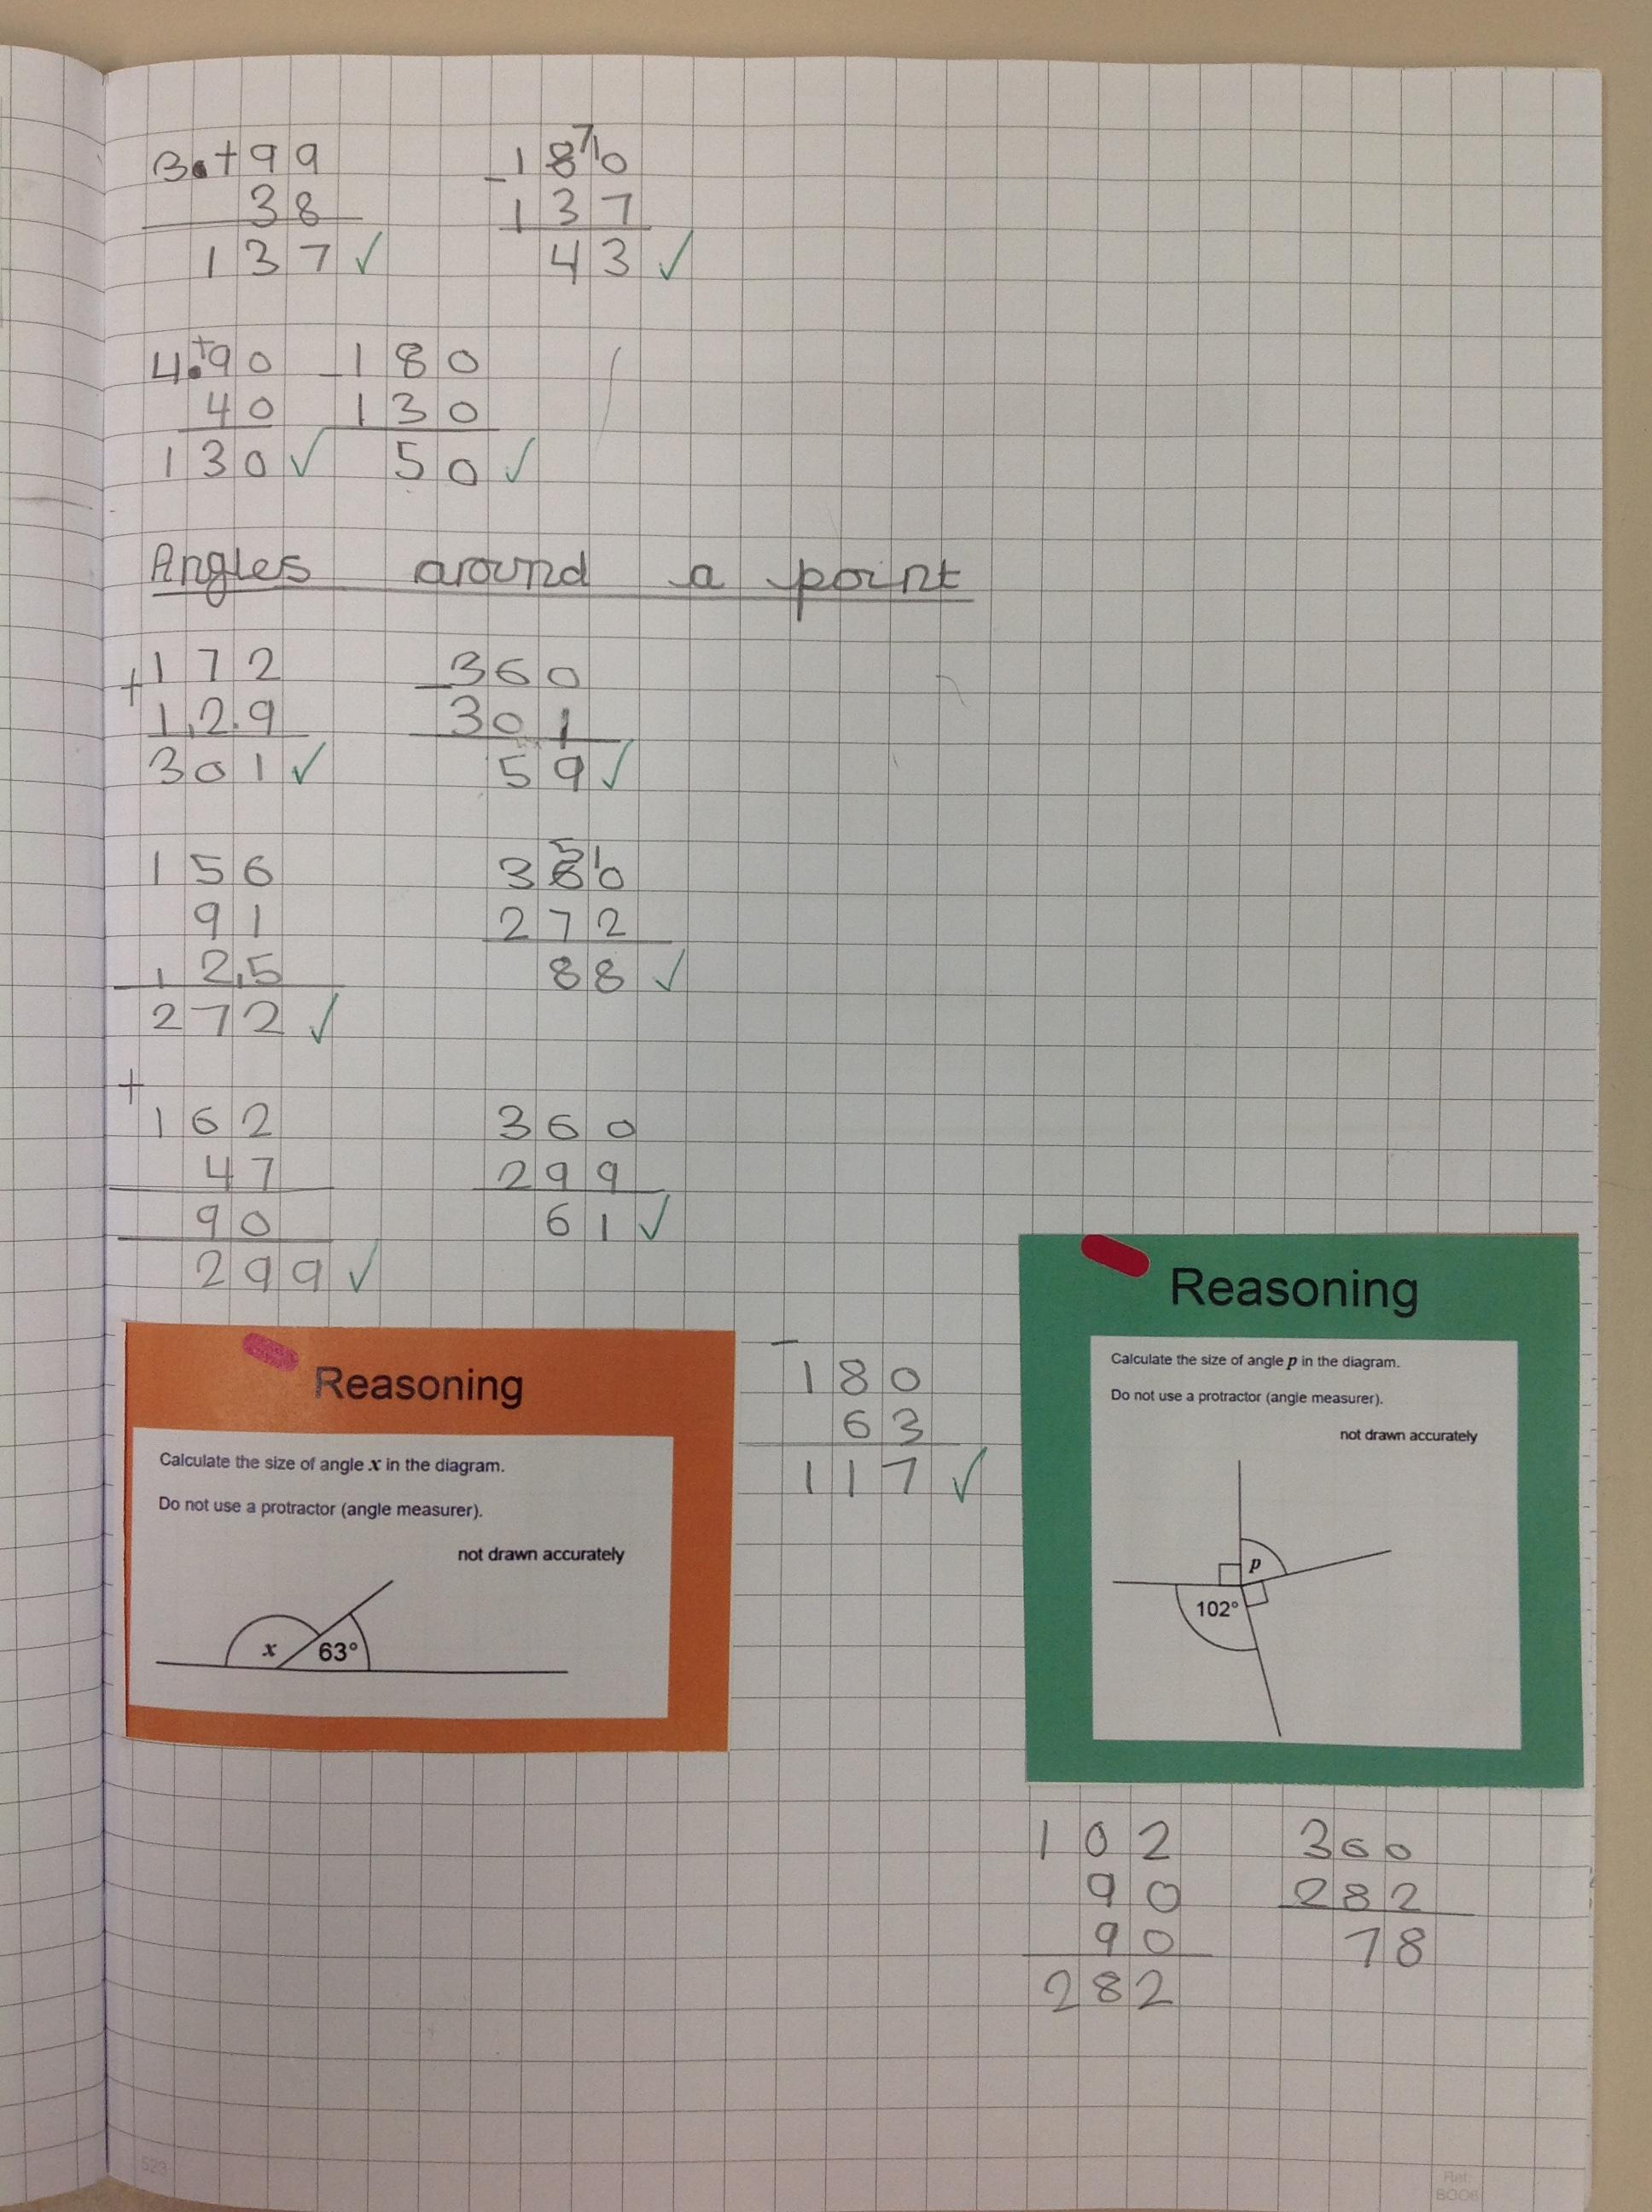 3. + 99 - 180
38 137
137 ✓ 43 ✓
4. + 90 - 180
40 130
130 ✓ 50 ✓
Angles around a point
+ 172 - 360
129 301
301 ✓ 59 ✓
156 360
91 272
25 88 ✓
272 ✓
+
162 360
47 299
90 61 ✓
299 ✓
Reasoning
Calculate the size of angle x in the diagram.
Do not use a protractor (angle measurer).
not drawn accurately
x 63°
-
180
63
117 ✓
Reasoning
Calculate the size of angle p in the diagram.
Do not use a protractor (angle measurer).
not drawn accurately
p
102°
102 360
90 282
90 78
282